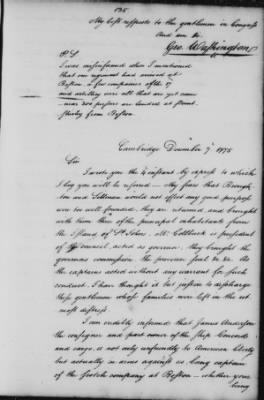 My best respects to the gentlemen in Congress
And am &c
Geo. Washington
P.S.
I was misinformed when I mentioned
that one regiment had arrived at
Boston, a few companies of the 17
and artillery were all that are yet come
near 300 persons are landed at point
Shirley from Boston
Cambridge December 7 1775
Sir
I wrote you the 4 instant by express to which
I beg you will be referred - My fears that Brough-
ton and Sellman would not effect any good purpose
were too well founded, they are returned and brought
with them three of the principal inhabitants from
the Island of St Johns. Mr Collbeck is president
of council, acted as governor. they brought the
governors commission the province seal &c &c. As
the captains acted without any warrant for such
conduct. I have thought it but justice to discharge
these gentlemen whose families were left in the ut
most distress
I am credibly informed that James Anderson
the consignee and part owner of the ship Concord
and cargo is not only unfriendly to American liberty
but actually in arms against us being captain
of the Scotch company at Boston - whether your
being